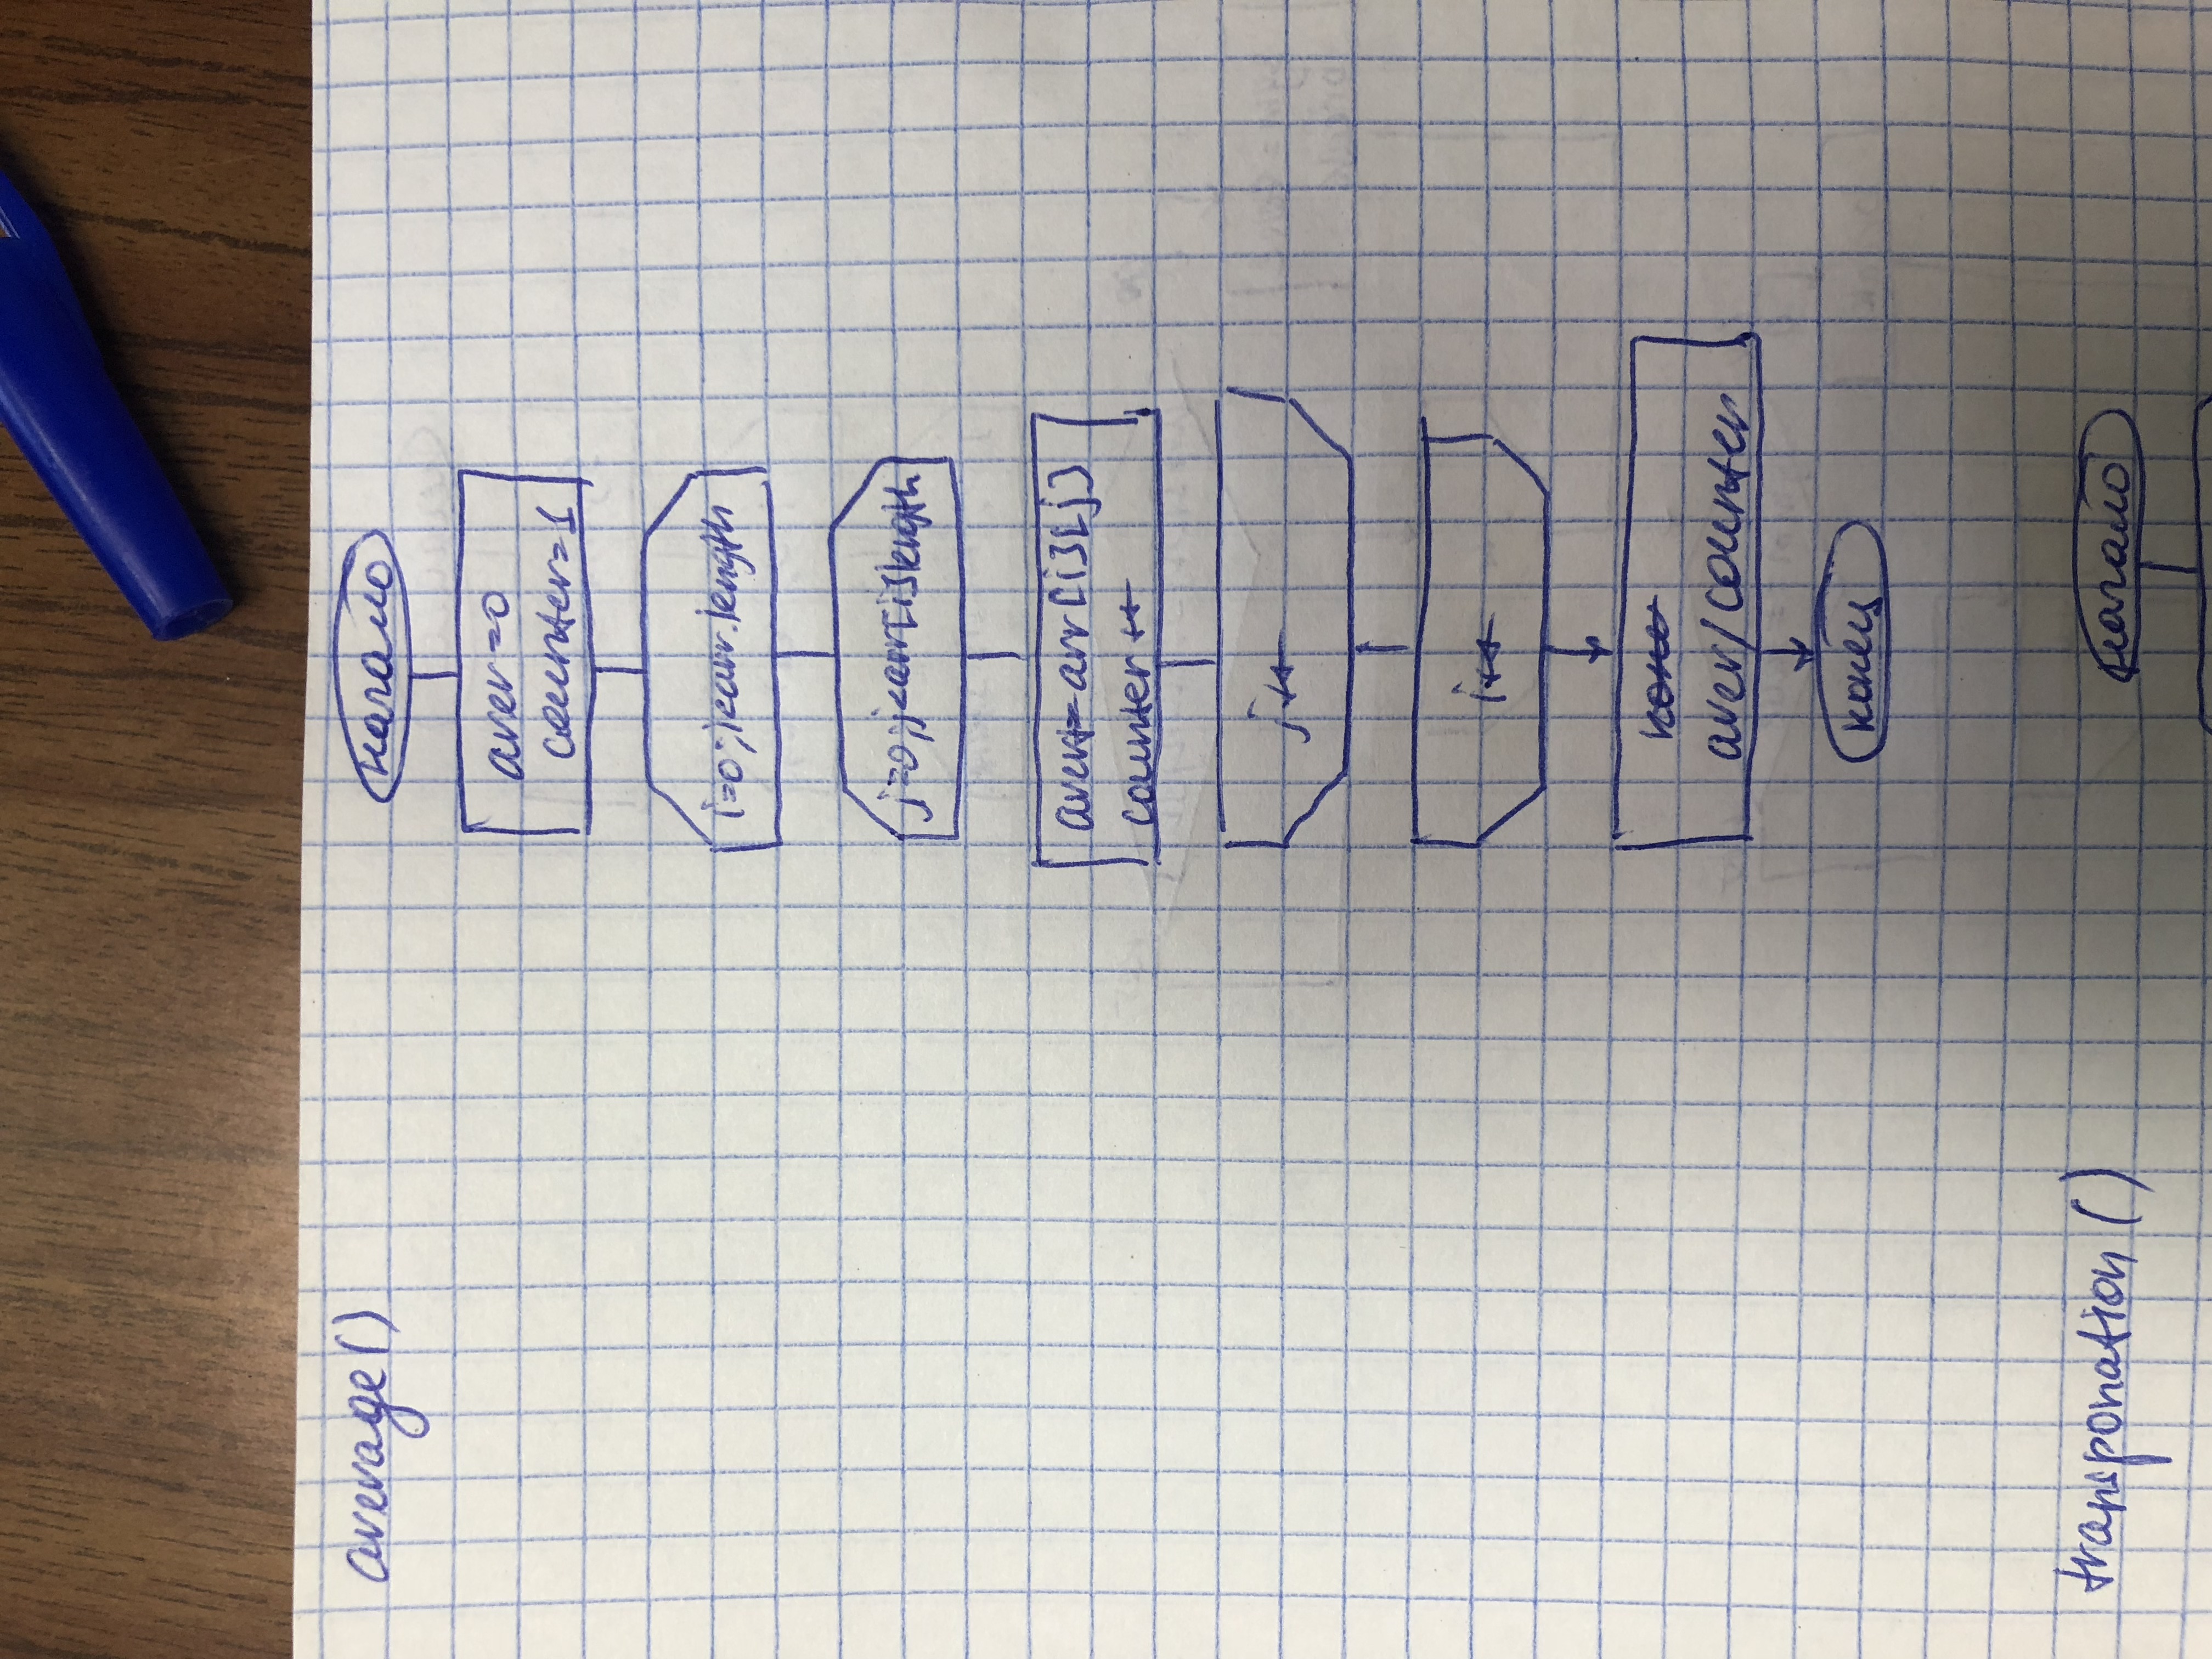 average()
начало
aver=0
counter=1
i=0;i<arr.length
j=0;j<arr[i]length
aver+=arr[i][j]
counter++
j++
i++
aver/counter
конец
transponation()
начало